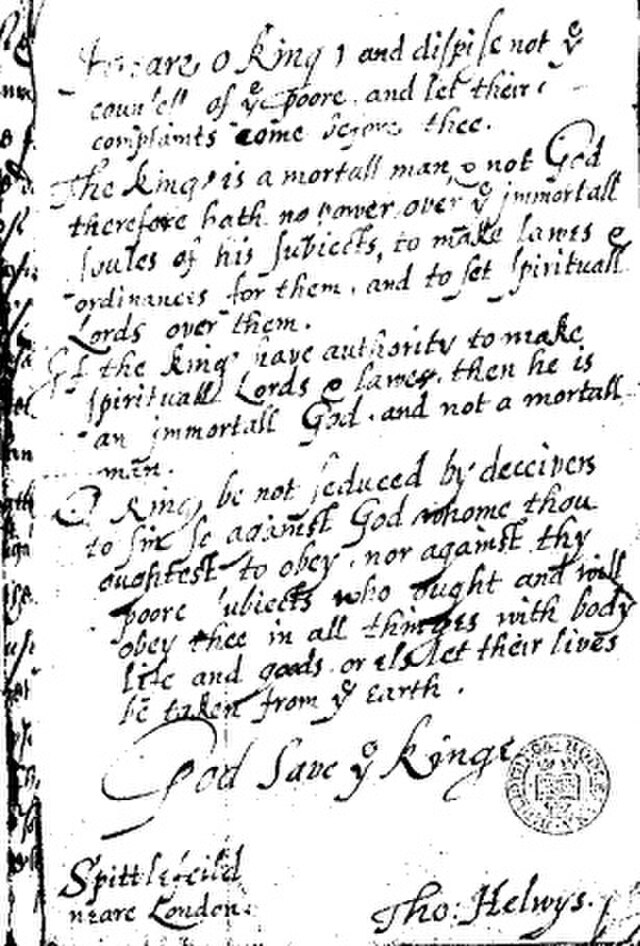 Heare O King, and dispise not yͤ
counsell of yͤ poore, and let their
complaints come before thee.
The King is a mortall man, & not God
therefore hath no power over yͤ immortall
soules of his subiects, to make lawes &
ordinances for them, and to set spirituall
Lords over them.
If the King have authority to make
spirituall Lords & lawes, then he is
an immortall God, and not a mortall
man.
O King, be not seduced by deceivers
to sin so against God whome thou
oughtest to obey, nor against thy
poore subiects who ought and will
obey thee in all thinges with body
life and goods, or els let their lives
be taken from yͤ earth.
God save yͤ Kinge
Spittlefeild
neare London.
Tho: Helwys.